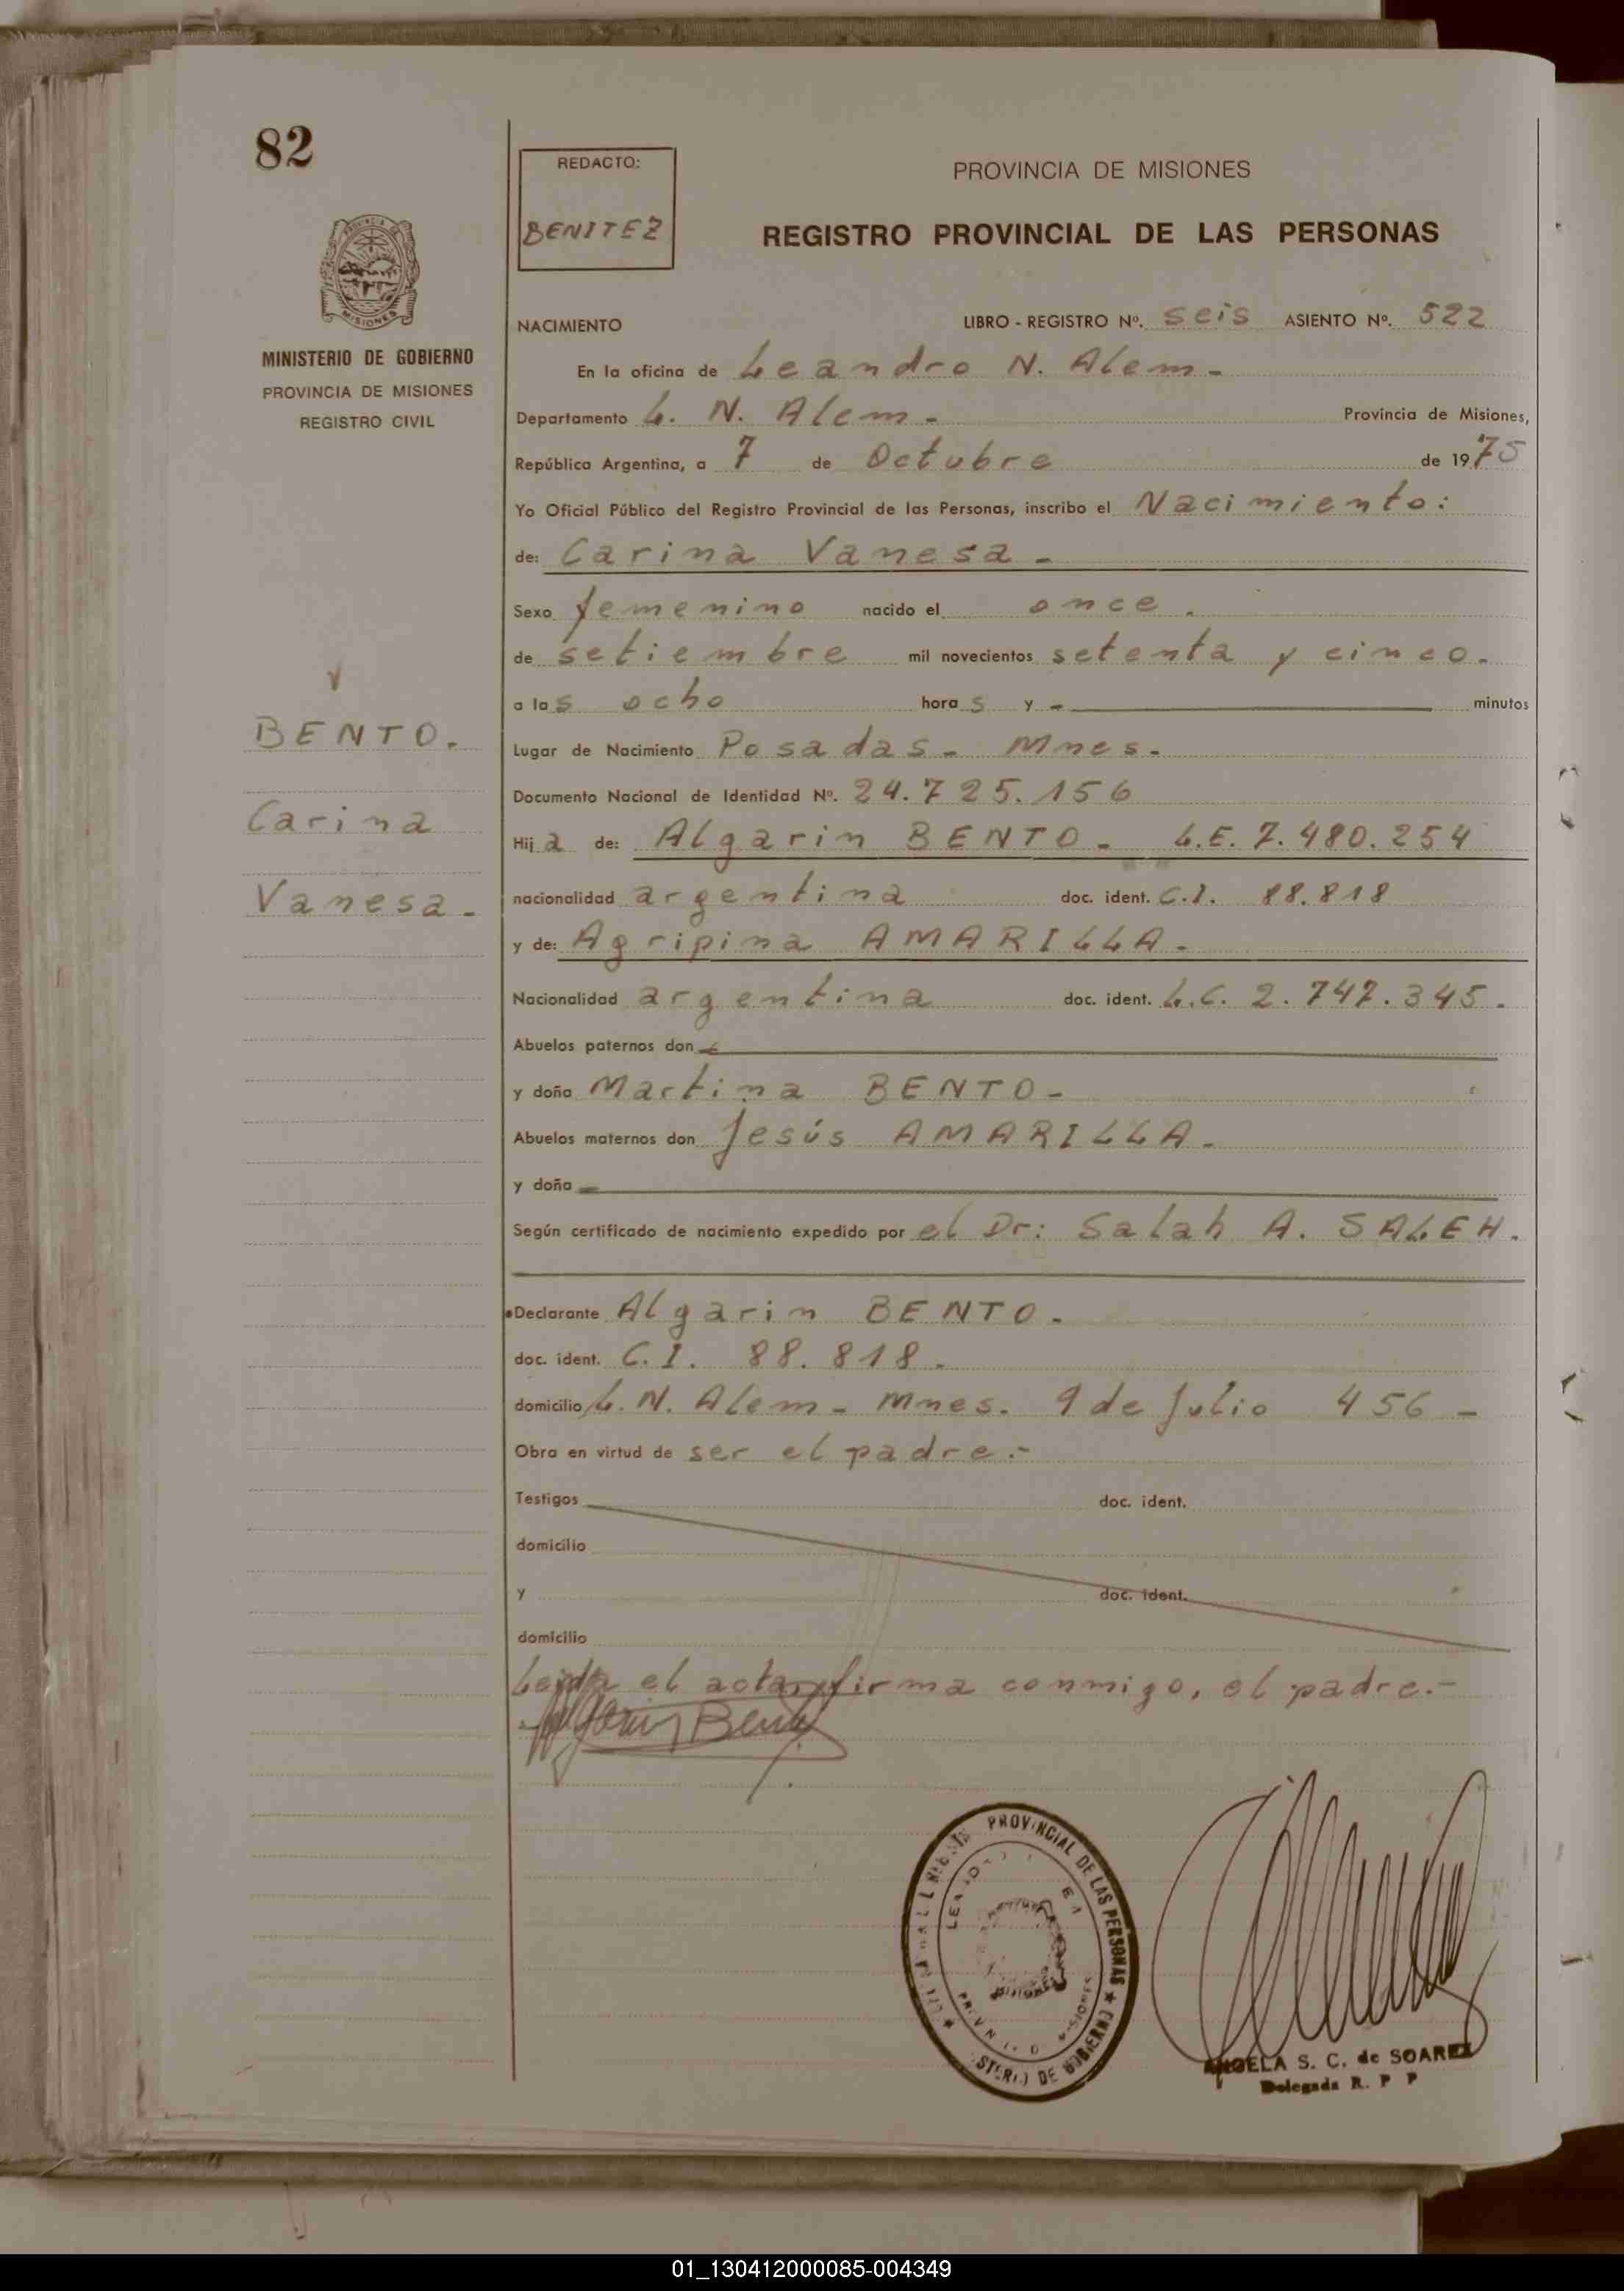 82
REDACTO:
BENITEZ
PROVINCIA DE MISIONES
REGISTRO PROVINCIAL DE LAS PERSONAS
MISIONES
MINISTERIO DE GOBIERNO
PROVINCIA DE MISIONES
REGISTRO CIVIL
NACIMIENTO LIBRO - REGISTRO Nº. seis ASIENTO Nº. 522
En la oficina de Leandro N. Alem -
Departamento L. N. Alem - Provincia de Misiones,
República Argentina, a 7 de Octubre de 1975
Yo Oficial Público del Registro Provincial de las Personas, inscribo el Nacimiento:
de: Carina Vanesa -
Sexo femenino nacido el once.
de setiembre mil novecientos setenta y cinco.
a las ocho horas y - minutos
BENTO.
Carina
Vanesa -
Lugar de Nacimiento Posadas - Mnes -
Documento Nacional de Identidad Nº. 24.725.156
Hija de: Algarin BENTO - L.E. 7.480.254
nacionalidad argentina doc. ident. C.I. 88.818
y de: Agripina AMARILLA -
Nacionalidad argentina doc. ident. L.C. 2.747.345.
Abuelos paternos don -
y doña Martina BENTO -
Abuelos maternos don Jesús AMARILLA -
y doña -
Según certificado de nacimiento expedido por el Dr: Salah A. SALEH.
Declarante Algarin BENTO.
doc. ident. C.I. 88.818.
domicilio L. N. Alem - Mnes. 9 de Julio 456 -
Obra en virtud de ser el padre.-
Testigos doc. ident.
domicilio
y doc. ident.
domicilio
Leida el acta, firma conmigo, el padre.-
PROVINCIAL DE LAS PERSONAS
DE GOBIERNO
ANGELA S. C. de SOAREZ
Delegada R. P P
01_130412000085-004349